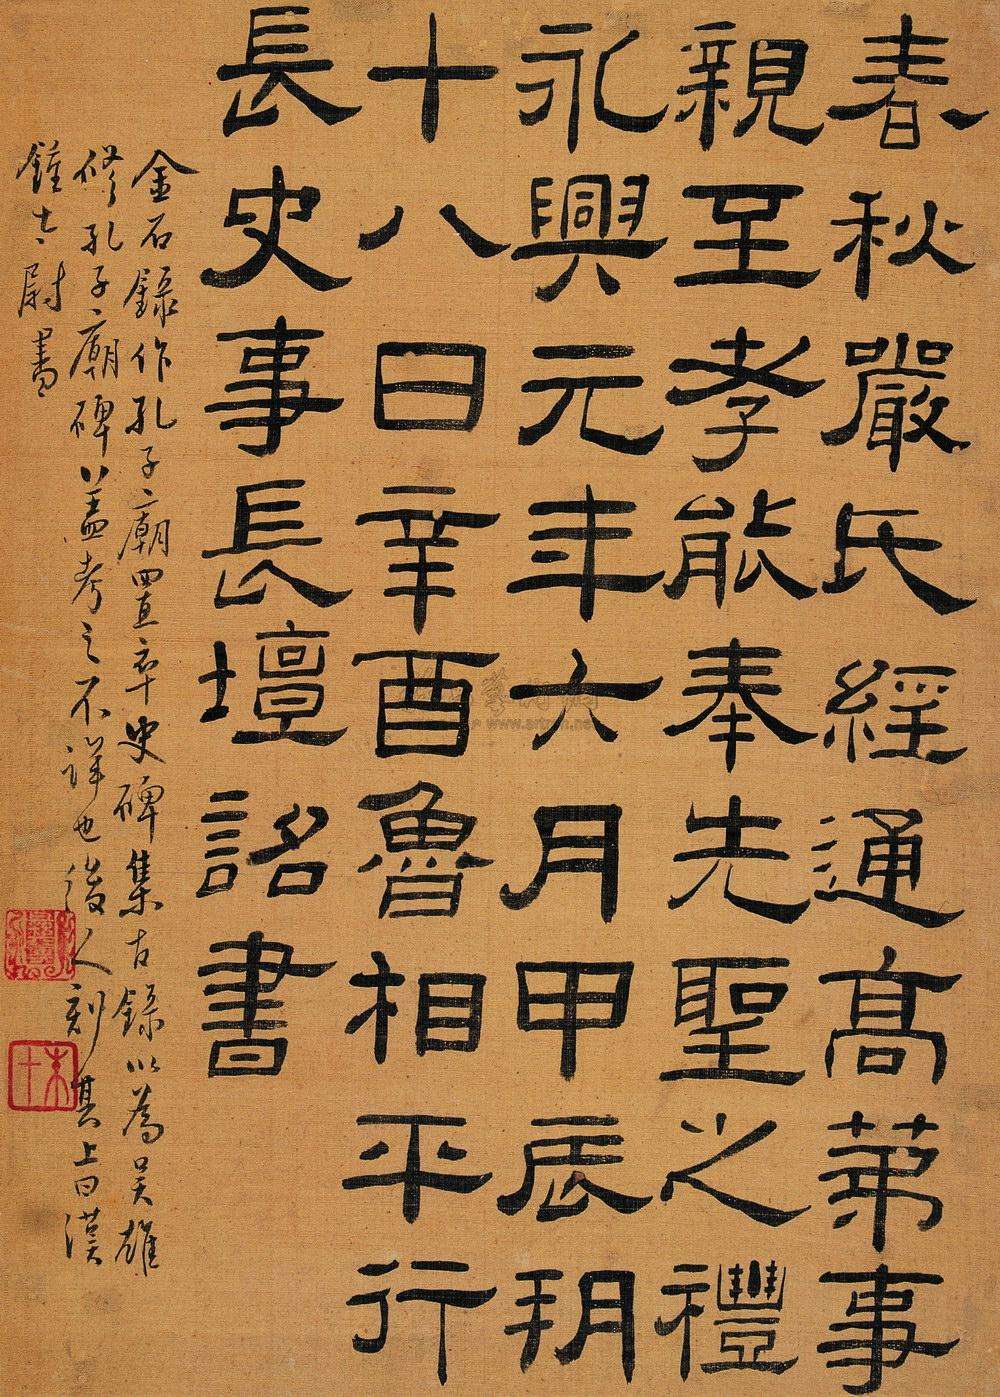 春秋嚴氏經通高苐事
親至孝能奉先聖之禮
永興元年六月甲辰朔
十八日辛酉魯相平行
長史事長壇詔書
金石錄作孔子廟置卒史碑集古錄以為吳雄
修孔子廟碑盖考之不詳也後人刻其上曰漢
鍾太尉書